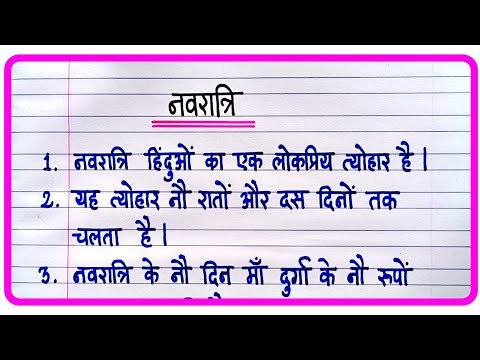 नवरात्रि
1. नवरात्रि हिंदुओं का एक लोकप्रिय त्योहार है।
2. यह त्योहार नौ रातों और दस दिनों तक
चलता है।
3. नवरात्रि के नौ दिन माँ दुर्गा के नौ रूपों